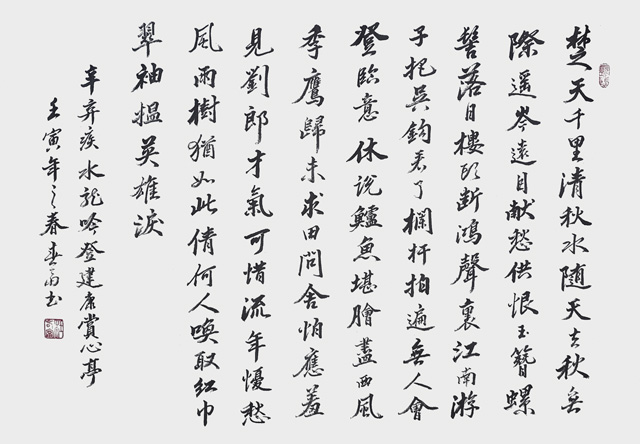 楚天千里清秋水随天去秋無
際遥岑遠目献愁供恨玉簪螺
髻落日樓頭断鴻聲裏江南游
子把吳鈎看了欄杆拍遍無人會
登臨意休説鱸魚堪膾盡西風
季鷹歸未求田問舍怕應羞
見劉郎才氣可惜流年憂愁
風雨樹猶如此倩何人唤取紅巾
翠袖揾英雄淚
辛弃疾水龍吟登建康賞心亭
壬寅年之春书